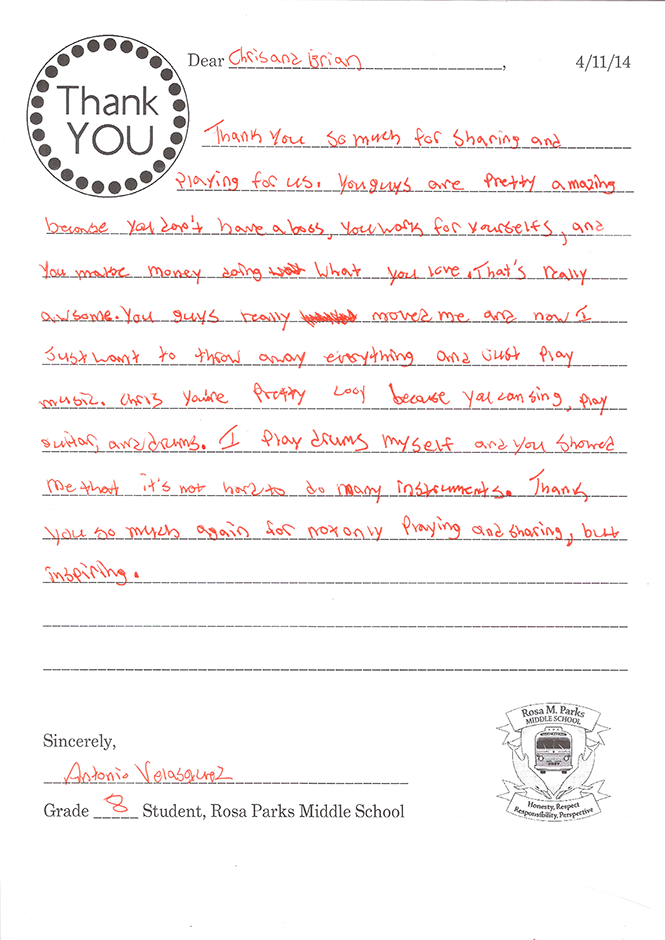 Thank
YOU
Dear Chris and Brian,
4/11/14
Thank you so much for sharing and
playing for us. You guys are pretty amazing
because you don't have a boss, you work for yourselfs, and
you make money doing what you love. That's really
awsome. You guys really moved me and now I
just want to throw away everything and just play
music. Chris you're pretty cool because you can sing, play
guitar, and drums. I play drums myself and you showed
me that it's not hard to do many instruments. Thank
you so much again for not only playing and sharing, but
inspiring.
Sincerely,
Antonio Velasquez
Grade 8 Student, Rosa Parks Middle School
Rosa M. Parks
MIDDLE SCHOOL
Honesty, Respect
Responsibility, Perspective